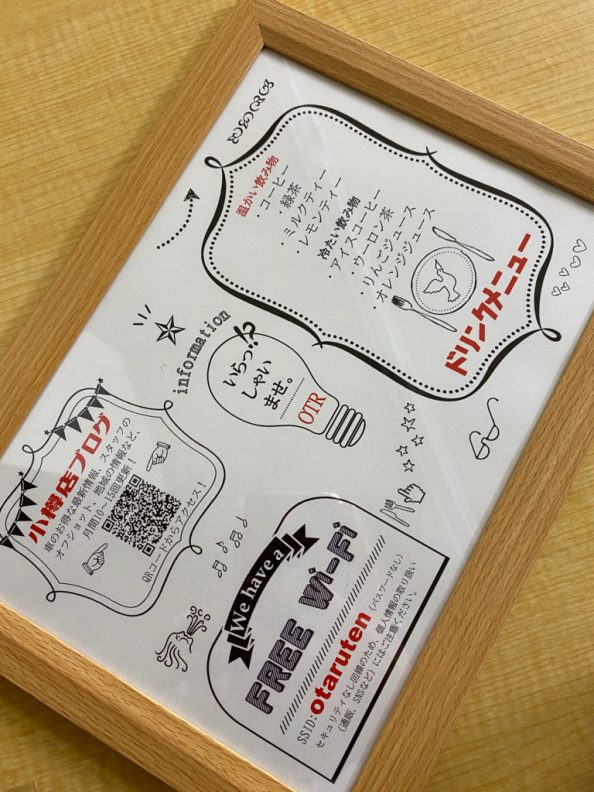 ドリンクメニュー
温かい飲み物
・コーヒー
緑茶
・ミルクティー
・レモンティー
冷たい飲み物
・アイスコーヒー
・ウーロン茶
・りんごジュース
・オレンジジュース
information
いらっ
しゃい
ませ。
OTR
小樽店ブログ
車のお得な最新情報、スタッフの
オフショット、地域の情報など、
月間10～15回更新！
QRコードからアクセス！
We have a
FREE Wi-Fi
SSID:otaruten(パスワードなし)
セキュリティなし回線のため、個人情報の取り扱い
(通販、SNSなど)にはご注意ください。